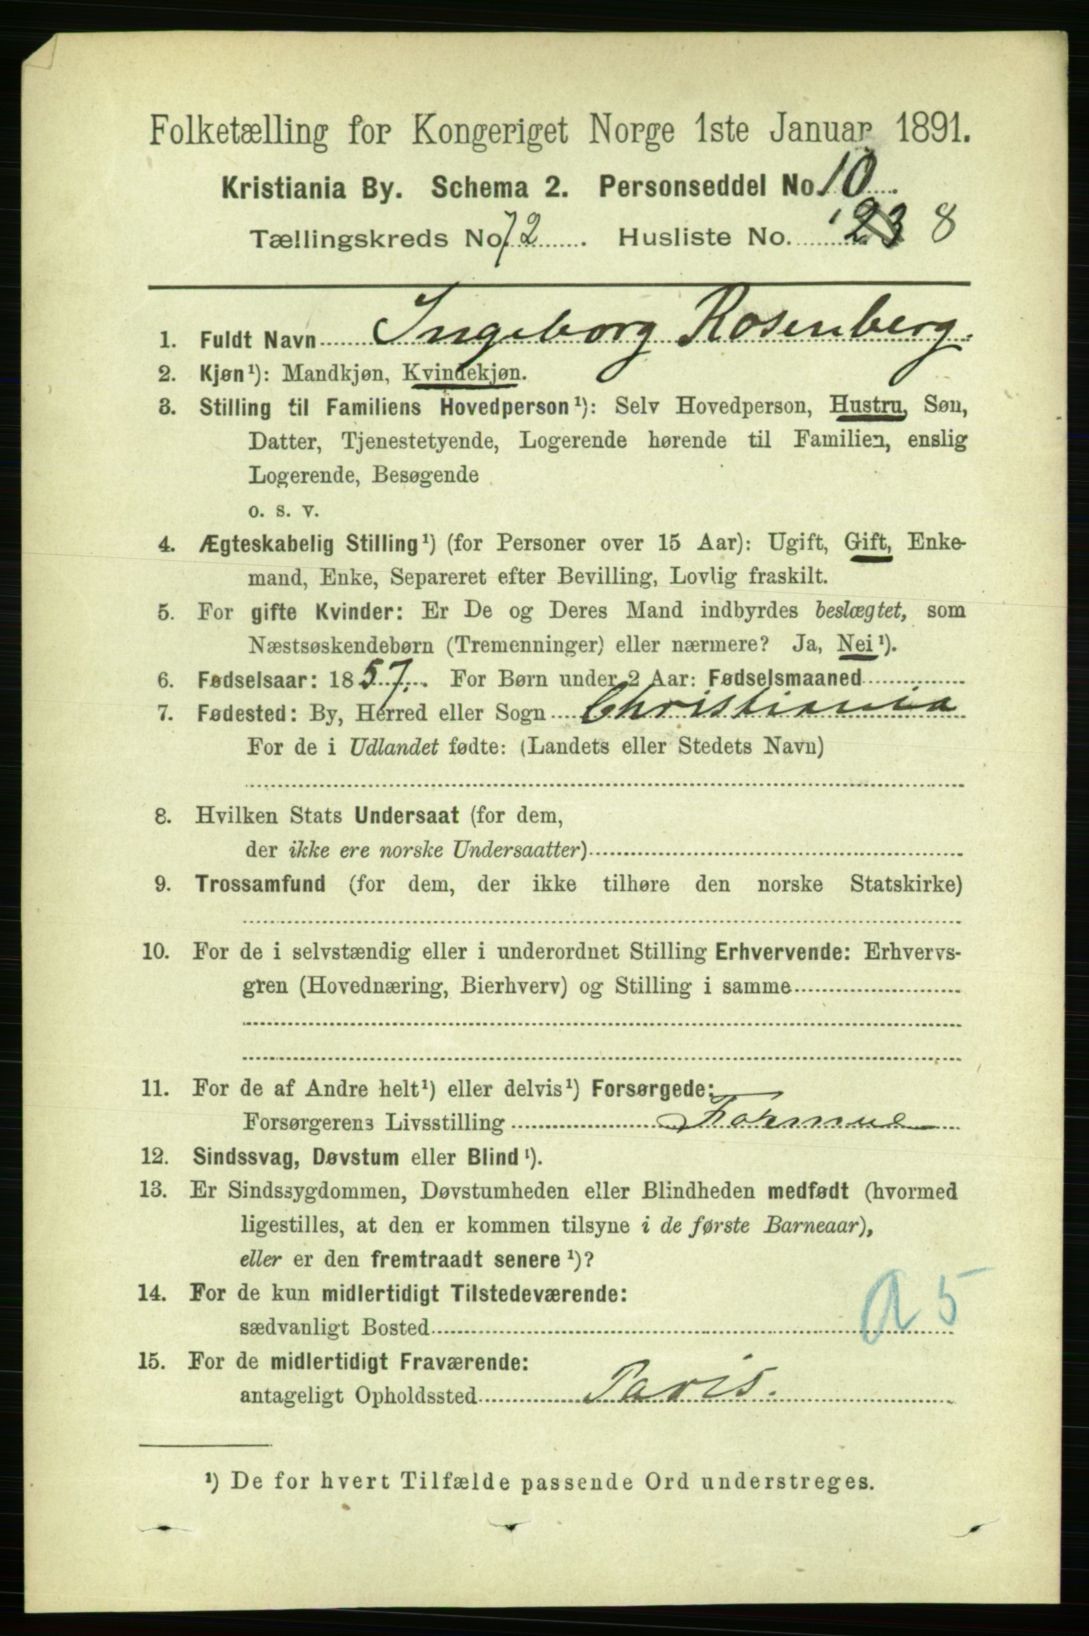 Folketælling for Kongeriget Norge 1ste Januar 1891.
Kristiania By. Schema 2. Personseddel No. 10
Tællingskreds No. 72. Husliste No. 23 8
1. Fuldt Navn Ingeborg Rosenberg.
2. Kjøn¹): Mandkjøn, Kvindekjøn.
3. Stilling til Familiens Hovedperson¹): Selv Hovedperson, Hustru, Søn,
Datter, Tjenestetyende, Logerende hørende til Familien, enslig
Logerende, Besøgende
o. s. v.
4. Ægteskabelig Stilling¹) (for Personer over 15 Aar): Ugift, Gift, Enke-
mand, Enke, Separeret efter Bevilling, Lovlig fraskilt.
5. For gifte Kvinder: Er De og Deres Mand indbyrdes beslægtet, som
Næstsøskendebørn (Tremenninger) eller nærmere? Ja, Nei¹).
6. Fødselsaar: 1857. For Børn under 2 Aar: Fødselsmaaned
7. Fødested: By, Herred eller Sogn Christiania
For de i Udlandet fødte: (Landets eller Stedets Navn)
8. Hvilken Stats Undersaat (for dem,
der ikke ere norske Undersaatter)
9. Trossamfund (for dem, der ikke tilhøre den norske Statskirke)
10. For de i selvstændig eller i underordnet Stilling Erhvervende: Erhvervs-
gren (Hovednæring, Bierhverv) og Stilling i samme
11. For de af Andre helt¹) eller delvis¹) Forsørgede:
Forsørgerens Livsstilling Formue
12. Sindssvag, Døvstum eller Blind¹).
13. Er Sindssygdommen, Døvstumheden eller Blindheden medfødt (hvormed
ligestilles, at den er kommen tilsyne i de første Barneaar),
eller er den fremtraadt senere¹)?
14. For de kun midlertidigt Tilstedeværende:
sædvanligt Bosted
a 5
15. For de midlertidigt Fraværende:
antageligt Opholdssted Paris.
¹) De for hvert Tilfælde passende Ord understreges.